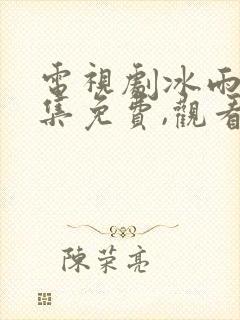 電視劇冰雨
集免費,觀看
陳荣亮